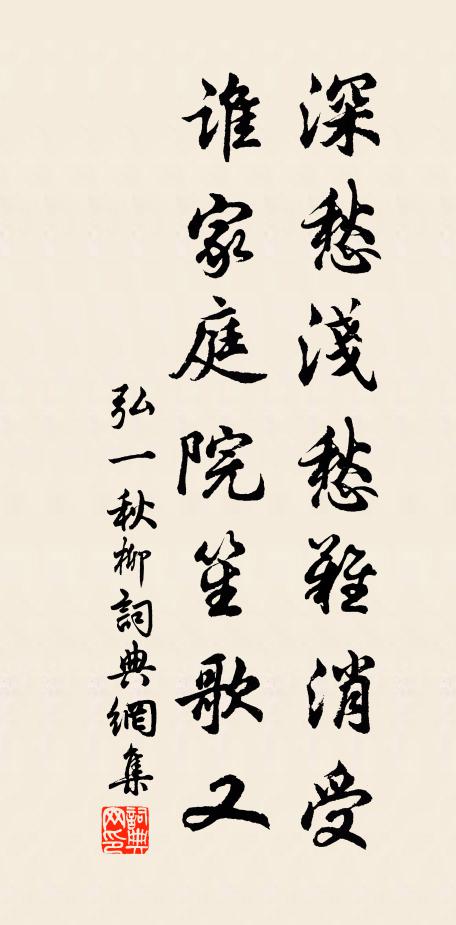 深愁淺愁難消受
誰家庭院笙歌又
弘一秋柳詞典網集
詞典网印